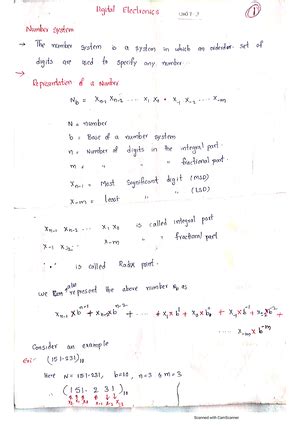 Digital Electronics
UNIT-I
1
Number System
→ The number system is a system in which an ordered set of
digits are used to specify any number.
→
Representation of a Number
N_b = x_{n-1} x_{n-2} ---- x_1 x_0 . x_{-1} x_{-2} ---- x_{-m}
N = number
b = Base of a number system
n = Number of digits in the integral part
m = " " " fractional part.
x_{n-1} = Most Significant digit (MSD)
x_{-m} = least " " (LSD)
x_{n-1} x_{n-2} ---- x_1 x_0 is called integral part
x_{-1} x_{-2} --- x_{-m} " " fractional part
'.' is called Radix point.
we can also represent the above number N_b as
x_{n-1}×b^{n-1} + x_{n-2}×b^{n-2} ---- + x_1×b^1 + x_0×b^0 + x_{-1}×b^{-1} + x_{-2}×b^{-2} + ----
---- x_{-m}×b^{-m}
Consider an example
Ex:- (151.231)_{10}
Here N = 151.231, b=10, n=3 & m=3
→ (151.231)_{10}
x_2 x_1 x_0 x_{-1} x_{-2} x_{-3}
Scanned with CamScanner